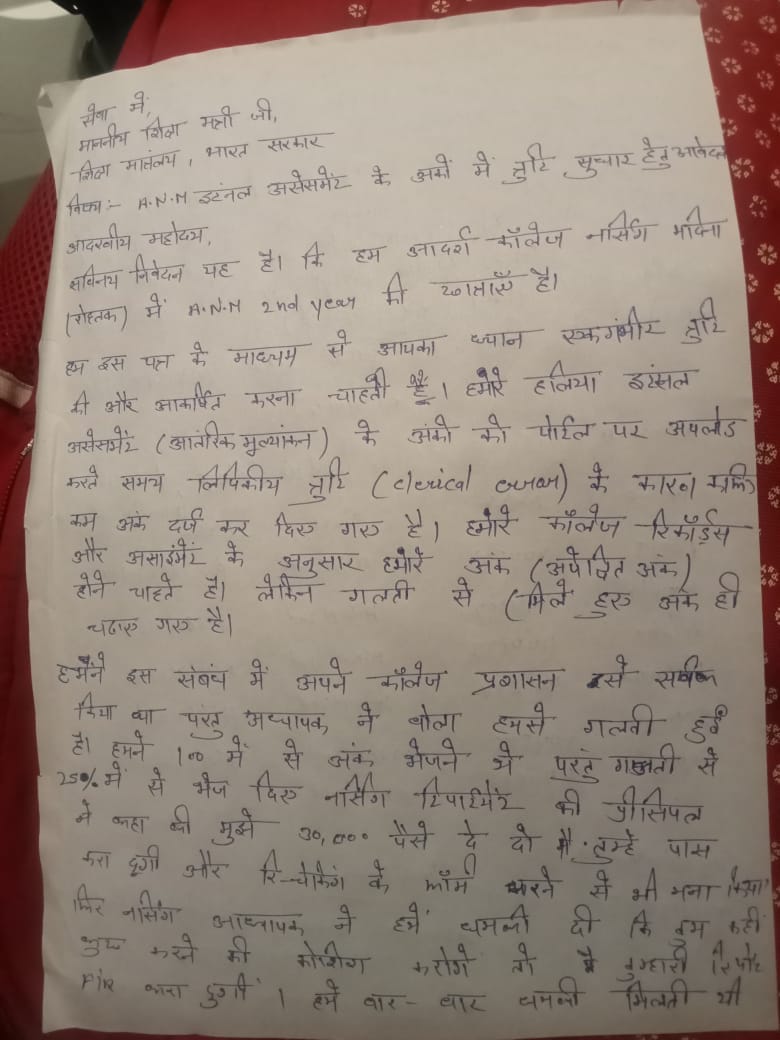 सेवा में,
माननीय शिक्षा मंत्री जी,
शिक्षा मातंलय, भारत सरकार
विषय:- A.N.M इटंनल असेसमेंट के अकों में त्रुटि सुधार हेतु आवेदन
आदरणीय महोदय,
सविनय निवेदन यह है। कि हम आदर्श कॉलेज नर्सिंग
(रोहतक) में A.N.M 2nd year की छात्राएँ है।
हम इस पत्र के माध्यम से आपका ध्यान एक गंभीर त्रुटि
की और आकर्षित करना चाहती है। हमारे हालिया इटंनल
असेसमेंट (आंतरिक मूल्यांकन) के अंको को पोर्टल पर अपलोड
करते समय लिपिकीय त्रुटि (clerical error) के कारण
कम अंक दर्ज कर दिए गए है। हमारे कॉलेज रिकॉर्ड्स
और असाइमेंट के अनुसार हमारे अंक (अपेक्षित अंक)
होने चाहते है। लेकिन गलती से (मिले हुए अंक ही
चढाए गए है।
हमने इस संबंध में अपने कॉलेज प्रशासन से सर्पक
किया था परंतु अध्यापक ने बोला हमसे गलती हुई
है। हमने 100 में से अंक भेजने थे परतुं गलती से
25% में से भेज दिए नर्सिंग डिपार्टमेंट की प्रीसिपल
ने कहा की मुझे 30,000 पैसे दे दो मै तुम्हे पास
करा दूगी और रि-चेकिंग के फॉर्म भरने से भी मना किया
फिर नर्सिंग अध्यापक ने हमें धमकी दी कि तुम कहीं
कुछ करने की कोशिश करोगे तो मै तुम्हारी रिपोट
FIR करा दुगीं। हमें बार-बार धमकी मिलती थी